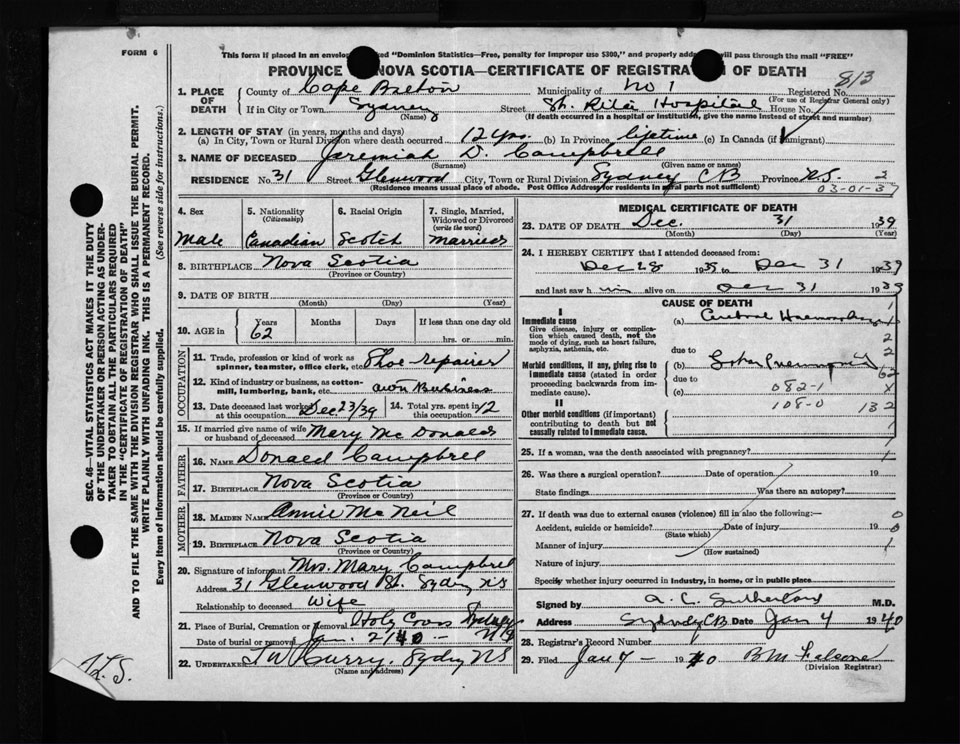 FORM 6
This form if placed in an envelope marked "Dominion Statistics—Free, penalty for improper use $300," and properly addressed will pass through the mail "FREE"
PROVINCE NOVA SCOTIA—CERTIFICATE OF REGISTRATION OF DEATH
813
1. PLACE OF DEATH County of Cape Breton Municipality of No 1 Registered No.
(For use of Registrar General only)
If in City or Town Sydney Street St. Rita Hospital House No.
(Name) (If death occurred in a hospital or institution, give the name instead of street and number)
2. LENGTH OF STAY (in years, months and days)
(a) In City, Town or Rural Division where death occurred 12 yrs. (b) In Province lifetime (c) In Canada (if immigrant)
3. NAME OF DECEASED Jeremiah D. Campbell
(Surname) (Given name or names)
RESIDENCE No. 31 Street Glenwood City, Town or Rural Division Sydney CB Province N.S. 2
(Residence means usual place of abode. Post Office Address for residents in rural parts not sufficient)
03-01-37
4. Sex Male
5. Nationality (Citizenship) Canadian
6. Racial Origin Scotch
7. Single, Married, Widowed or Divorced (write the word) Married
8. BIRTHPLACE Nova Scotia
(Province or Country)
9. DATE OF BIRTH
(Month) (Day) (Year)
10. AGE in Years 62 Months Days If less than one day old hrs. or min.
OCCUPATION
11. Trade, profession or kind of work as spinner, teamster, office clerk, etc. Shoe repairer
12. Kind of industry or business, as cotton-mill, lumbering, bank, etc. own Business
13. Date deceased last worked at this occupation Dec 23/39 14. Total yrs. spent in this occupation 12
15. If married give name of wife or husband of deceased Mary McDonald
FATHER
16. NAME Donald Campbell
17. BIRTHPLACE Nova Scotia
(Province or Country)
MOTHER
18. MAIDEN NAME Annie McNeil
19. BIRTHPLACE Nova Scotia
(Province or Country)
20. Signature of informant Mrs. Mary Campbell
Address 31 Glenwood St. Sydney NS
Relationship to deceased Wife
21. Place of Burial, Cremation or Removal Holy Cross Sydney
Date of burial or removal Jan. 2/40 - NS
22. UNDERTAKER T W Curry. Sydney NS
(Name and address)
MEDICAL CERTIFICATE OF DEATH
23. DATE OF DEATH Dec. 31 1939
(Month) (Day) (Year)
24. I HEREBY CERTIFY that I attended deceased from:
Dec 28 1939 to Dec 31 1939
and last saw him alive on Dec 31 1939
CAUSE OF DEATH
I
Immediate cause (a) Cerebral Haemorrhage
Give disease, injury or complication which caused death, not the mode of dying, such as heart failure, asphyxia, asthenia, etc.
due to
(b) Lobar Pneumonia
Morbid conditions, if any, giving rise to immediate cause (stated in order proceeding backwards from immediate cause).
due to
(c) 082-1
II
108-0 132
Other morbid conditions (if important) contributing to death but not causally related to immediate cause.
25. If a woman, was the death associated with pregnancy?
26. Was there a surgical operation? Date of operation 19
State findings Was there an autopsy?
27. If death was due to external causes (violence) fill in also the following:—
Accident, suicide or homicide? Date of injury 19
(State which)
Manner of injury
(How sustained)
Nature of injury
Specify whether injury occurred in industry, in home, or in public place
Signed by A. C. Sutherland M.D.
Address Sydney CB Date Jan 4 1940
28. Registrar's Record Number
29. Filed Jan 7 - 1940
(Division Registrar)
SEC. 46—VITAL STATISTICS ACT MAKES IT THE DUTY OF THE UNDERTAKER OR PERSON ACTING AS UNDERTAKER TO OBTAIN ALL THE PARTICULARS REQUIRED IN THE "CERTIFICATE OF REGISTRATION OF DEATH"
AND TO FILE THE SAME WITH THE DIVISION REGISTRAR WHO SHALL ISSUE THE BURIAL PERMIT.
WRITE PLAINLY WITH UNFADING INK. THIS IS A PERMANENT RECORD.
Every item of information should be carefully supplied. (See reverse side for instructions.)